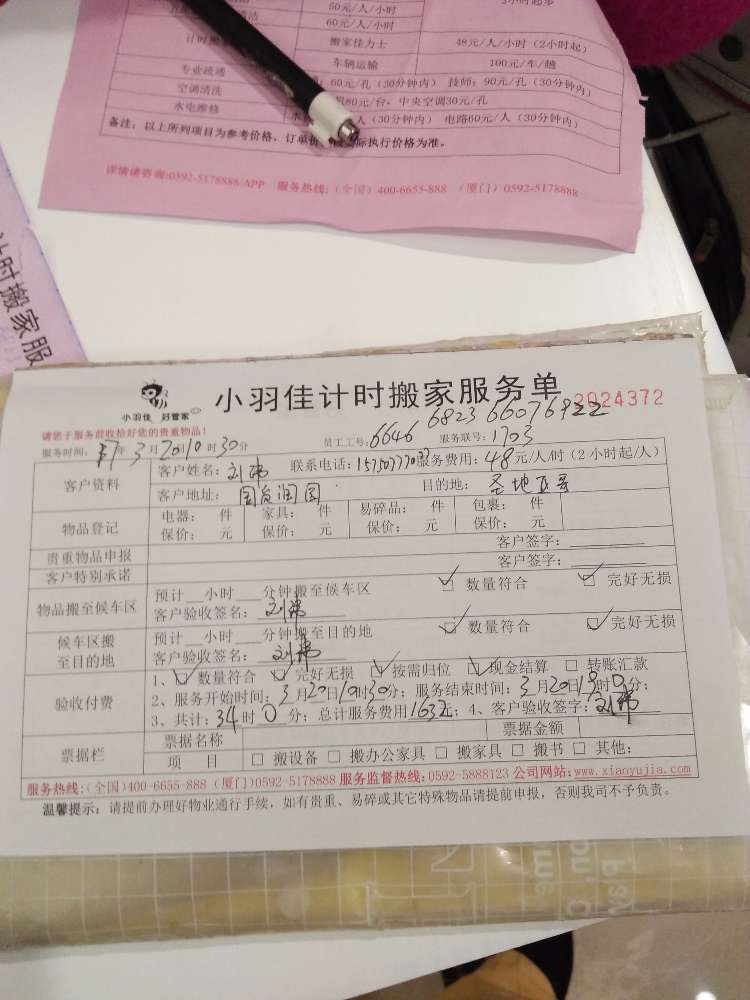 50元/人/小时
60元/人/小时
计时搬 搬家佳力士 48元/人/小时（2小时起）
车辆运输 100元/车/趟
专业疏通 60元/孔（30分钟内） 技师：90元/孔（30分钟内）
空调清洗 80元/台，中央空调30元/孔
水电维修 /人（30分钟内） 电路60元/人（30分钟内）
备注：以上所列项目为参考价格，订单价 际执行价格为准。
详情请咨询:0592-5178888/APP 服务热线：（全国）400-6655-888 （厦门）0592-5178888
计时搬家服
小羽佳 好管家
小羽佳计时搬家服务单 2024372
6823 6607 6922
请您于服务前收拾好您的贵重物品！
服务时间： 17年3月20日10时30分 员工工号：6646 服务联号：1703
客户资料 客户姓名：刘祎 联系电话：15750777037 服务费用：48元/人/时（2小时起/人）
客户地址：国贸润园 目的地：圣地亚哥
物品登记 电器： 件 家具： 件 易碎品： 件 包裹： 件
保价： 元 保价： 元 保价： 元 保价： 元
贵重物品申报 客户签字：
客户特别承诺 客户签字：
物品搬至候车区 预计 小时 分钟搬至候车区 ☑ 数量符合 ☑ 完好无损
客户验收签名：刘祎
候车区搬至目的地 预计 小时 分钟搬至目的地 ☑ 数量符合 ☑ 完好无损
客户验收签名：刘祎
验收付费 1、☑ 数量符合 ☑ 完好无损 ☑ 按需归位 ☑ 现金结算 □ 转账汇款
2、服务开始时间：3月20日10时30分；服务结束时间：3月20日 时0分；
3、共计：34时0分；总计服务费用1632元；4、客户验收签字：刘祎
票据栏 票据名称 票据金额
项 目 □ 搬设备 □ 搬办公家具 □ 搬家具 □ 搬书 □ 其他:
服务热线:（全国）400-6655-888（厦门）0592-5178888 服务监督热线:0592-5888123 公司网站:www.xiaoyujia.com
温馨提示：请提前办理好物业通行手续，如有贵重、易碎或其它特殊物品请提前申报，否则我司不予负责。